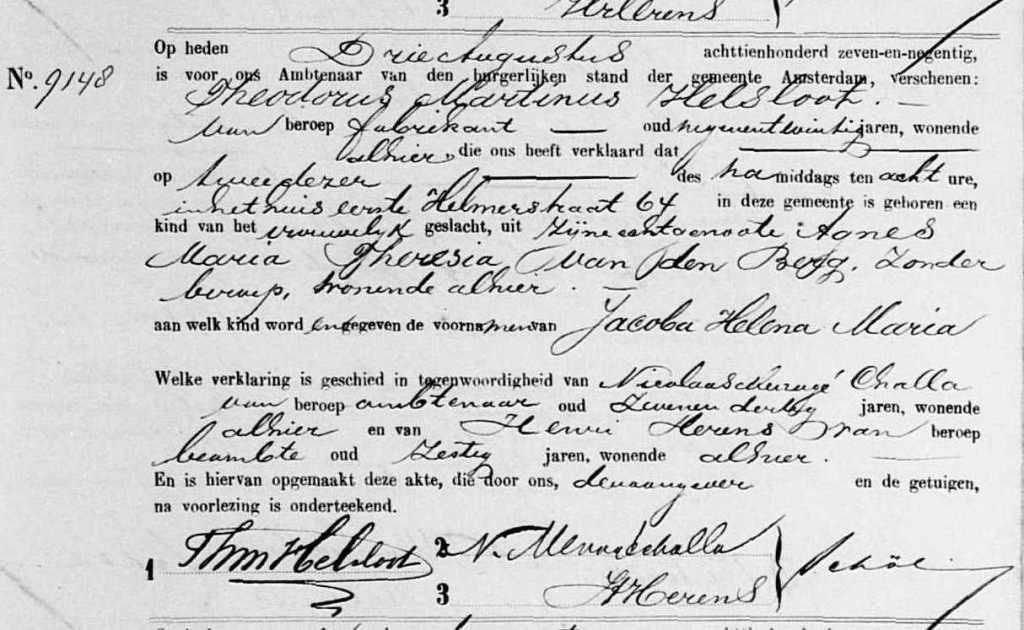 3 Hr Herens
Op heden Drie Augustus achttienhonderd zeven-en-negentig,
No. 9148 is voor ons Ambtenaar van den burgerlijken stand der gemeente Amsterdam, verschenen:
Theodorus Martinus Helsloot. —
van beroep fabrikant — oud negenentwintig jaren, wonende
alhier, die ons heeft verklaard dat
op twee dezer — des namiddags ten acht ure,
in het huis eerste Helmerstraat 64 in deze gemeente is geboren een
kind van het vrouwelijk geslacht, uit zijne echtgenoote Agnes
Maria Theresia van den Berg, zonder
beroep, wonende alhier. —
aan welk kind word en gegeven de voornamen van Jacoba Helena Maria
Welke verklaring is geschied in tegenwoordigheid van Nicolaas Challa
van beroep ambtenaar oud zevenendertig jaren, wonende
alhier en van Henri Herens van beroep
beambte oud zestig jaren, wonende alhier.
En is hiervan opgemaakt deze akte, die door ons, den aangever en de getuigen,
na voorlezing is onderteekend.
1 ThM Helsloot 2 N. Challa
3 Herens